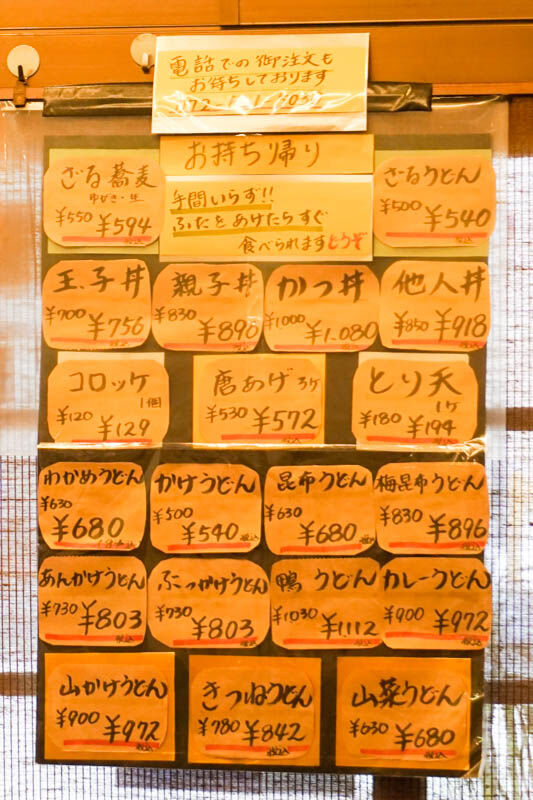 電話での御注文も
お待ちしております
お持ち帰り
ざる蕎麦
ゆがき・生
¥550 ¥594
税込
手間いらず!!
ふたをあけたらすぐ
食べられますどうぞ
ざるうどん
¥500 ¥540
税込
玉子丼
¥700 ¥756
税込
親子丼
¥830 ¥896
税込
かつ丼
¥1000 ¥1,080
税込
他人丼
¥850 ¥918
税込
コロッケ
1個
¥120 ¥129
税込
唐あげ3ケ
¥530 ¥572
税込
とり天
1ケ
¥180 ¥194
税込
わかめうどん
¥630
¥680
税込
かけうどん
¥500
¥540
税込
昆布うどん
¥630
¥680
税込
梅昆布うどん
¥830 ¥896
税込
あんかけうどん
¥730 ¥803
税込
ぶっかけうどん
¥730
¥803
税込
鴨うどん
¥1030 ¥1,112
税込
カレーうどん
¥900 ¥972
税込
山かけうどん
¥900 ¥972
税込
きつねうどん
¥780 ¥842
税込
山菜うどん
¥630 ¥680
税込